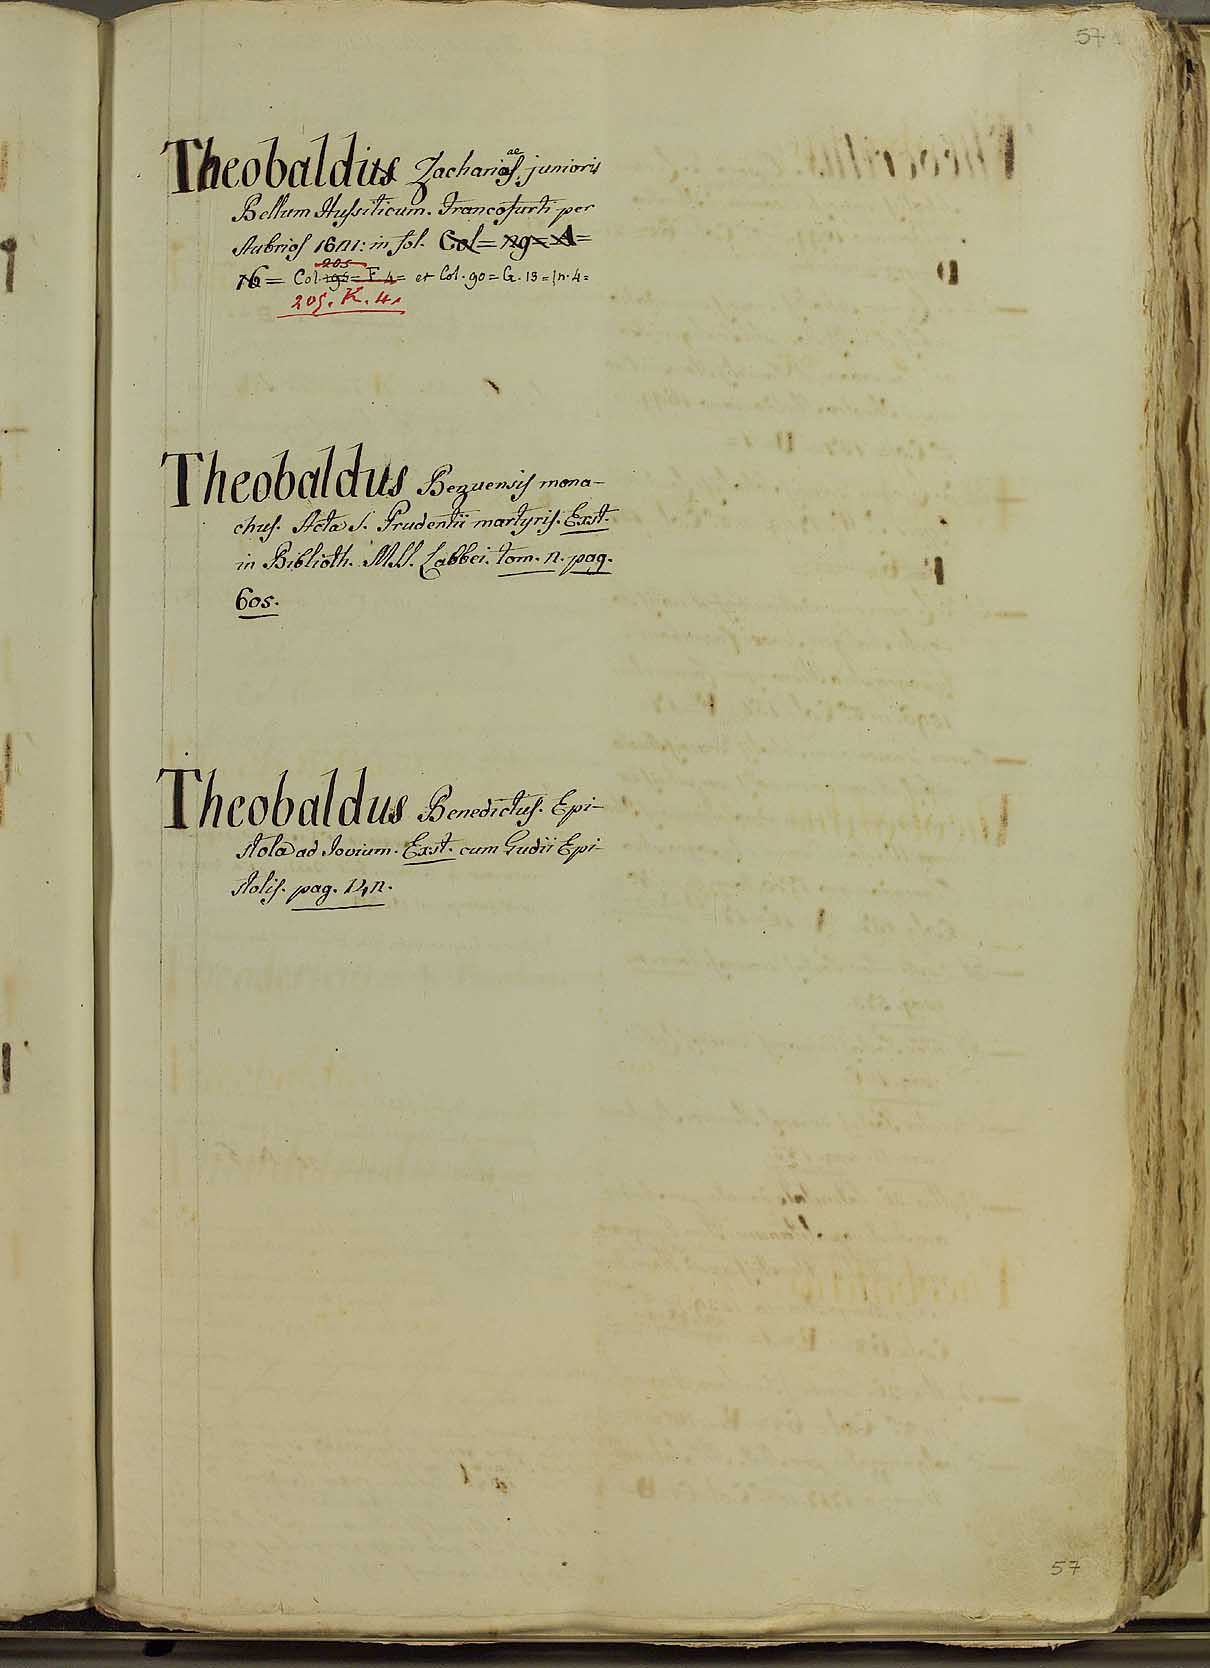 57
Theobaldus Zachariae, junioris
Bellum Hussiticum. Francofurti per
Aubrios 1621: in fol. Col = 29 = A =
16 = Col. 198 = F 4 = et Col. 90 = G. 13 = in. 4 =
205
205. K. 4.
Theobaldus Bezuensis mona-
chus. Acta S. Prudentii martyris. Exst.
in Biblioth. MSS. Labbei. tom. 2. pag.
605.
Theobaldus Benedictus. Epi-
stola ad Jovium. Exst. cum Gudii Epi-
stolis. pag. 142.
57